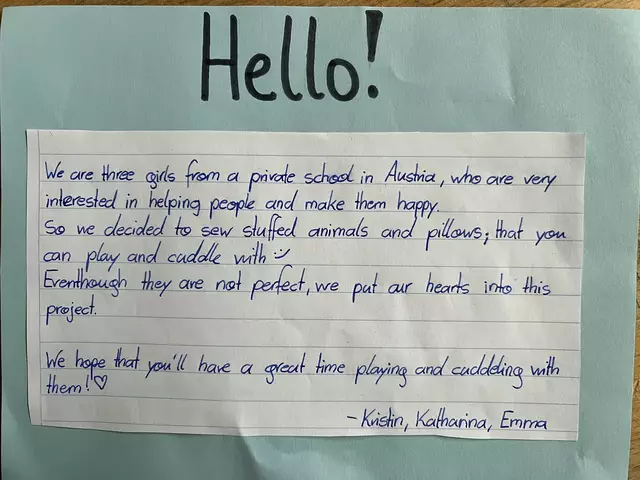 Hello!
We are three girls from a private school in Austria, who are very
interested in helping people and make them happy.
So we decided to sew stuffed animals and pillows; that you
can play and cuddle with :)
Eventhough they are not perfect, we put our hearts into this
project.
We hope that you'll have a great time playing and cuddeling with
them!♡
- Kristin, Katharina, Emma